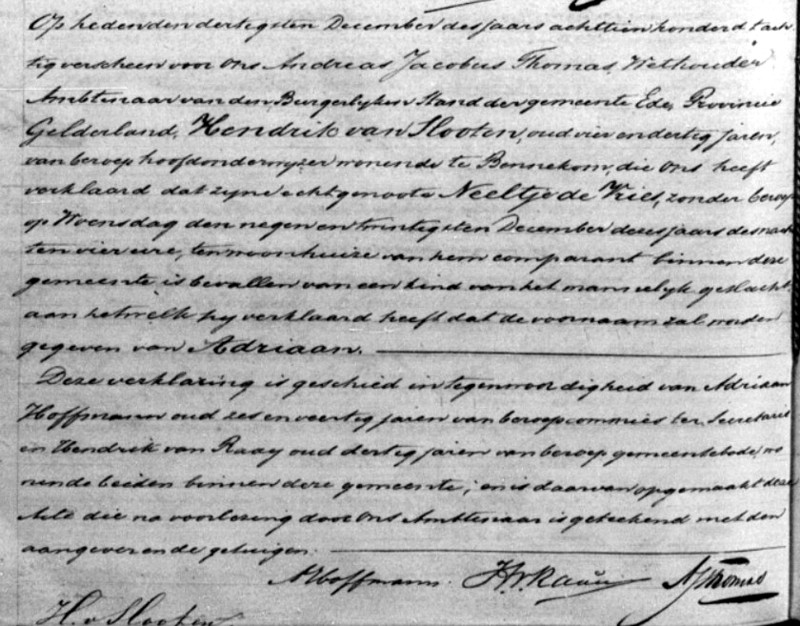 Op heden den dertigsten December des jaars achttien honderd tach
tig verscheen voor Ons Andreas Jacobus Thomas, Wethouder
Ambtenaar van den Burgerlyken Stand der gemeente Ede, Provincie
Gelderland, Hendrik van Slooten, oud vier en dertig jaren,
van beroep hoofdonderwyzer wonende te Bennekom, die Ons heeft
verklaard dat zyne echtgenoote Neeltje de Vries, zonder beroep
op Woensdag den negen en twintigsten December dezes jaars des nach
ten vier ure, ten woonhuize van hem comparant binnen deze
gemeente is bevallen van een kind van het mannelyk geslacht,
aan hetwelk hy verklaard heeft dat de voornaam zal worden
gegeven van Adriaan.
Deze verklaring is geschied in tegenwoordigheid van Adriaan
Hoffmann oud zes en veertig jaren van beroep commies ter Secretarie
en Hendrik van Raay oud dertig jaren van beroep gemeentebode, wo
nende beiden binnen deze gemeente; en is daarvan opgemaakt deze
Akte die na voorlezing door Ons Ambtenaar is geteekend met den
aangever en de getuigen.
AHoffmann. HvRaaij AJThomas
H. v Slooten